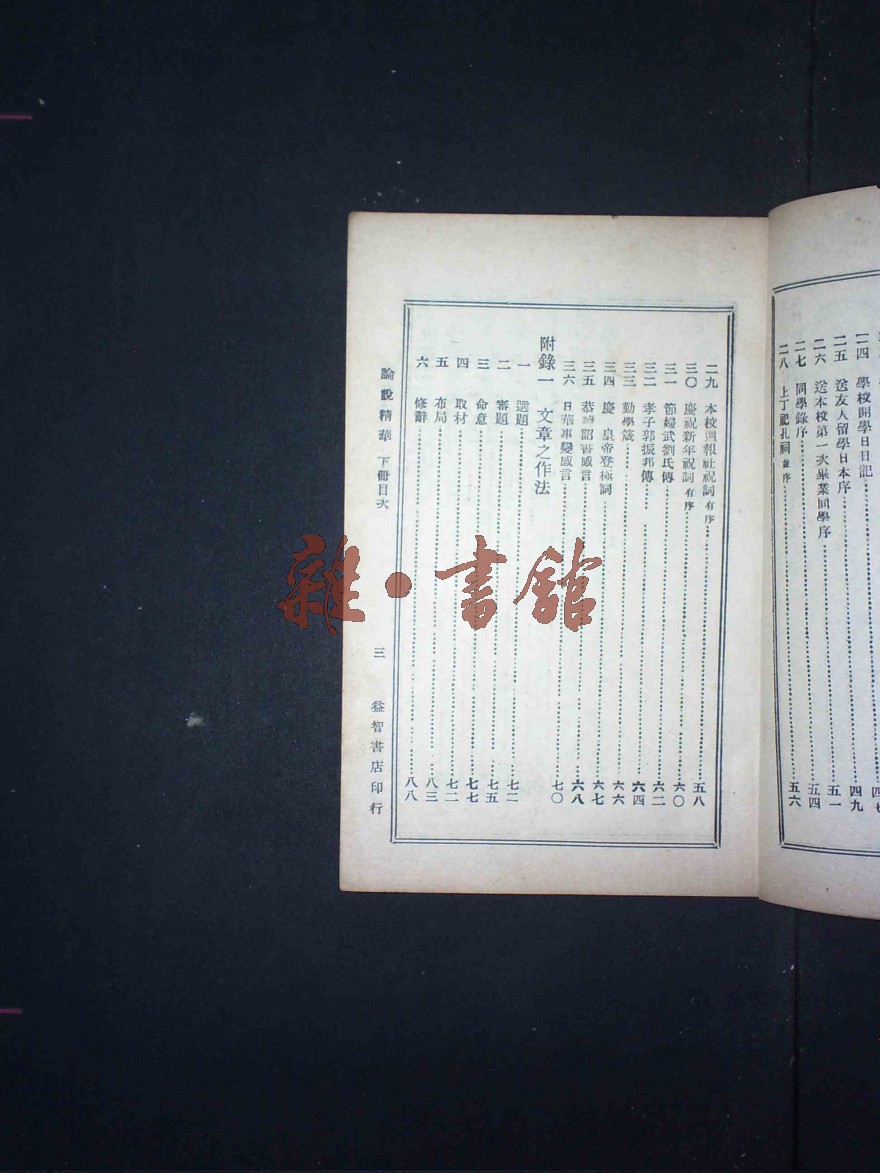 二四 學校開學日日記
二五 送友人留學日本序……四九
二六 送本校第一次畢業同學序……五一
二七 同學錄序……五四
二八 上丁祀孔祠 並序……五六
二九 本校週報社祝詞 有序……五八
三〇 慶祝新年祝詞 有序……六〇
三一 節婦武劉氏傳……六二
三二 孝子郭振邦傳……六四
三三 勤學箴……六六
三四 慶 皇帝登極詞……六七
三五 恭 詔書感言……六八
三六 日華事變感言……七〇
附錄一 文章之作法
一 選題……七二
二 審題……七五
三 命意……七七
四 取材……七二
五 布局……八三
六 修辭……八八
論說精華 下冊目次
三
益智書店印行
雜·書館